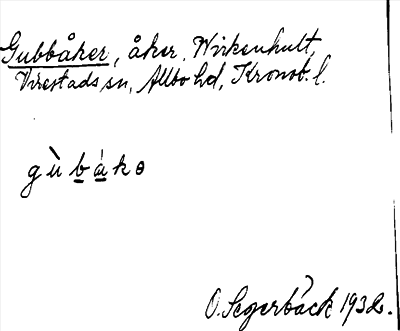 Gubbåker, åker. Wirkenhult,
Virestads sn, Allbo hd, Kronob. l.
gù bákə
O. Segerbäck 1932.